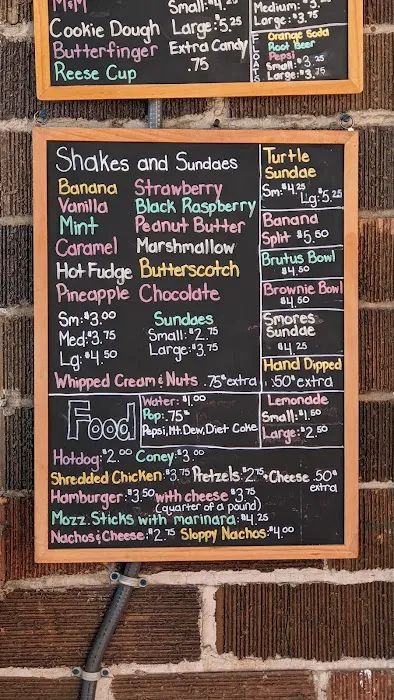 M&M Small: $4.25
Cookie Dough Large: $5.25
Butterfinger Extra Candy
Reese Cup .75
Medium: $3.25
Large: $3.75
FLOATS
Orange Soda
Root Beer
Pepsi
Small: $3.25
Large: $3.75
Shakes and Sundaes
Banana Strawberry
Vanilla Black Raspberry
Mint Peanut Butter
Caramel Marshmallow
Hot Fudge Butterscotch
Pineapple Chocolate
Sm: $3.00
Med: $3.75
Lg: $4.50
Sundaes
Small: $2.75
Large: $3.75
Whipped Cream & Nuts .75¢ extra
Turtle
Sundae
Sm: $4.25
Lg: $5.25
Banana
Split $5.50
Brutus Bowl
$4.50
Brownie Bowl
$4.50
Smores
Sundae
$4.25
Hand Dipped
.50¢ extra
Food
Water: $1.00
Pop: .75¢
Pepsi, Mt. Dew, Diet Coke
Lemonade
Small: $1.50
Large: $2.50
Hotdog: $2.00 Coney: $3.00
Shredded Chicken: $3.75 Pretzels: $2.75 + Cheese .50¢
extra
Hamburger: $3.50 with cheese $3.75
(quarter of a pound)
Mozz. Sticks with marinara: $4.25
Nachos & Cheese: $2.75 Sloppy Nachos: $4.00